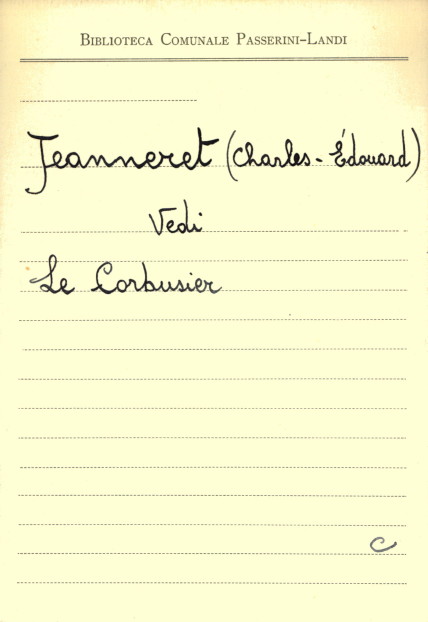 Biblioteca Comunale Passerini-Landi
Jeanneret (Charles-Édouard)
Vedi
Le Corbusier
C